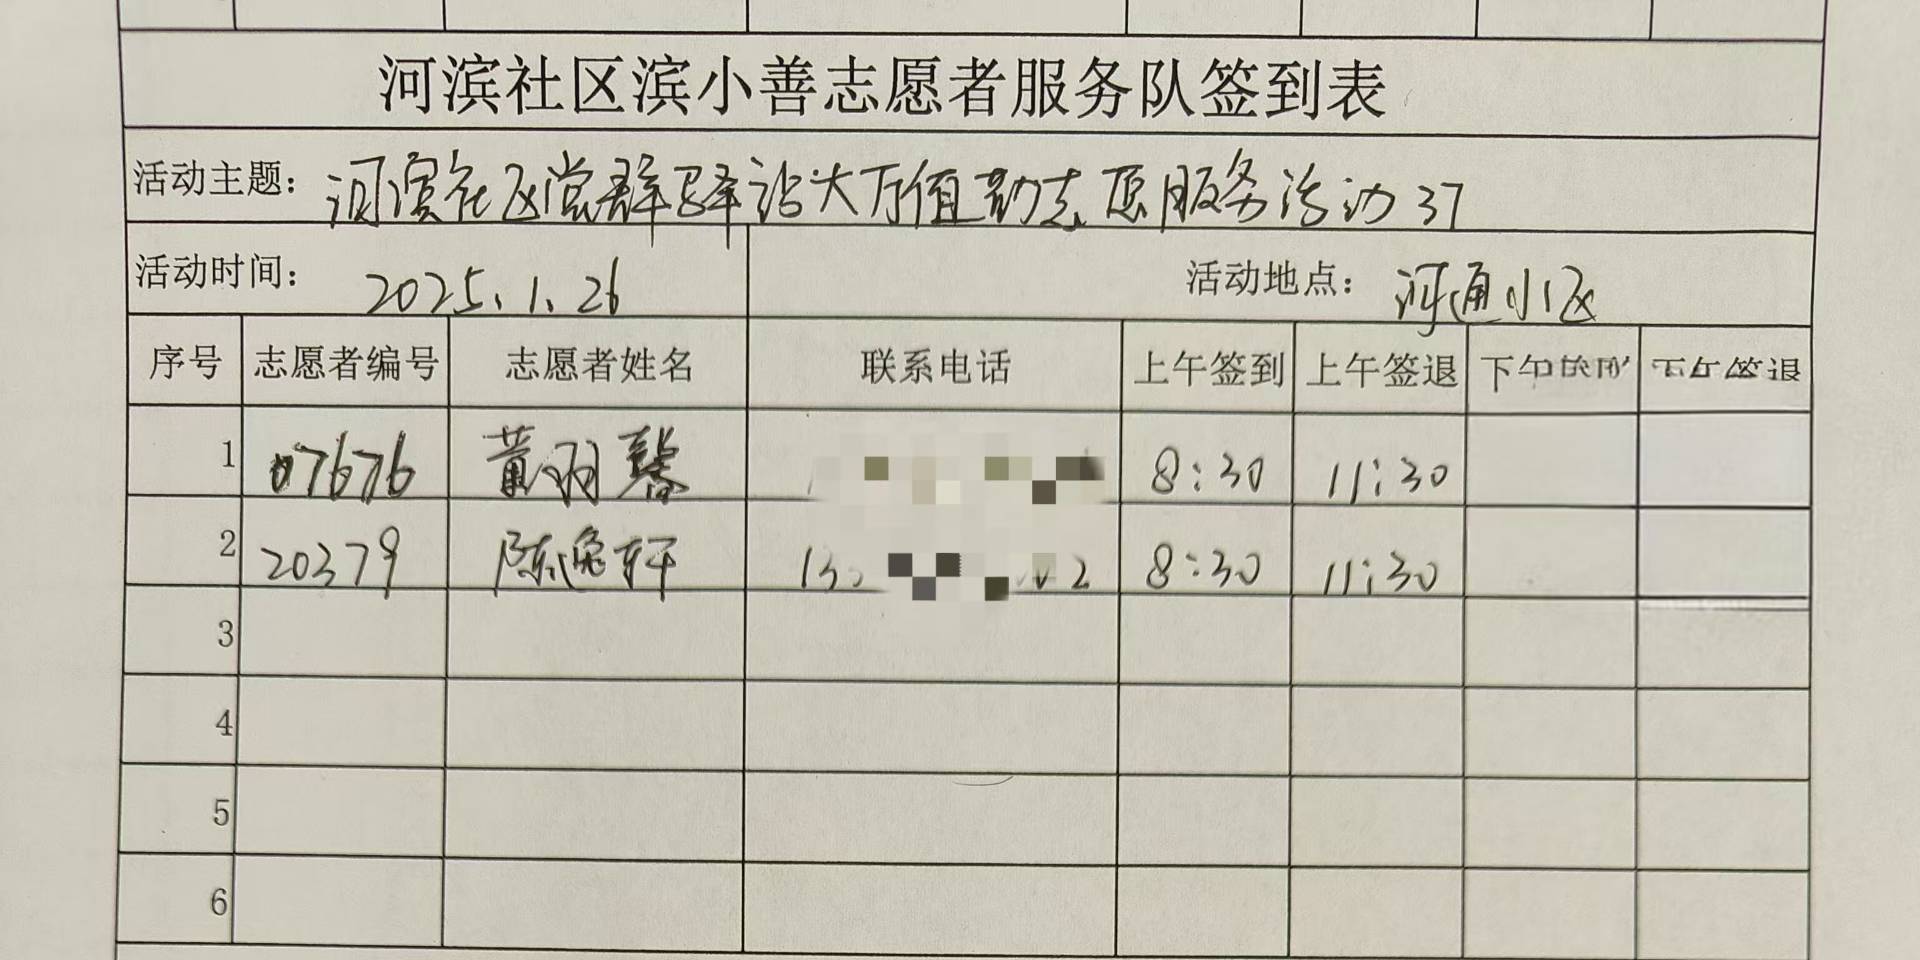 河滨社区滨小善志愿者服务队签到表
活动主题： 河滨社区党群驿站大厅值勤志愿服务活动37
活动时间： 2025.1.26 活动地点： 河通小区
序号 志愿者编号 志愿者姓名 联系电话 上午签到 上午签退 下午 下午签退
1 07676 黄羽馨 8:30 11:30
2 20379 陈逸轩 8:30 11:30
3
4
5
6